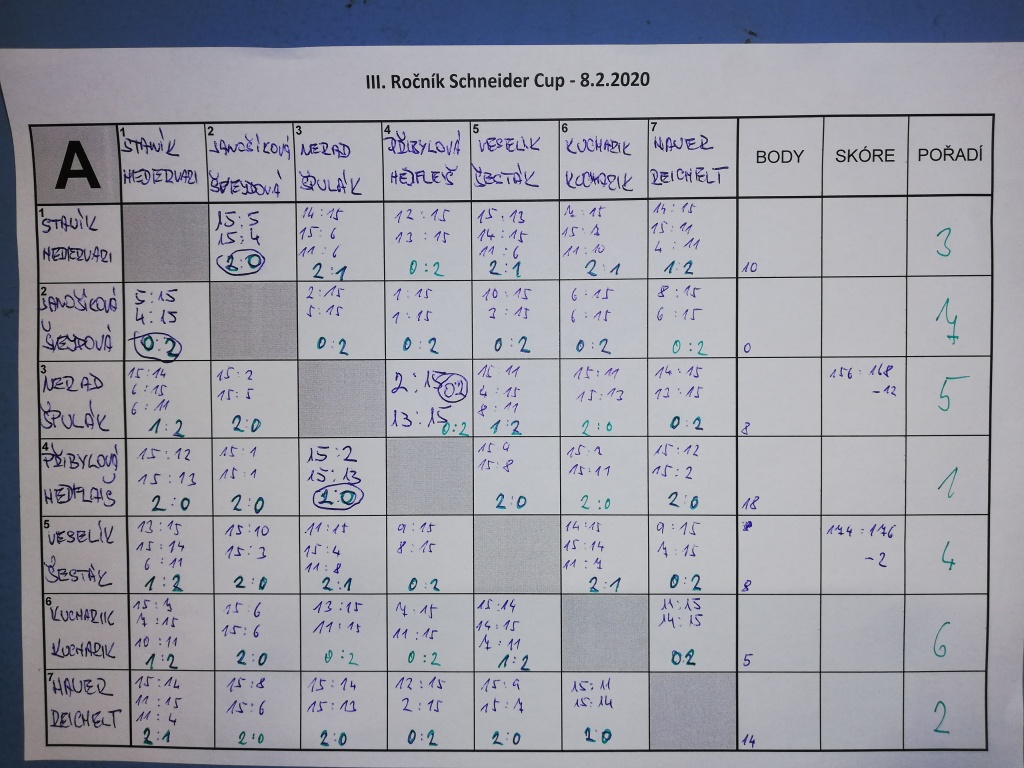 III. Ročník Schneider Cup - 8.2.2020
A
1 STANÍK HEDERVARI
2 JANOŠÍKOVÁ ŠVEJDOVÁ
3 NERAD ŠPULÁK
4 PŘIBYLOVÁ HEJFLEIŠ
5 VESELÍK ŠESTÁK
6 KUCHARIK KUCHARIK
7 HAUER REICHELT
BODY SKÓRE POŘADÍ
1 STANÍK HEDERVARI
15:5 15:4 2:0
14:15 15:6 11:6 2:1
12:15 13:15 0:2
15:13 14:15 11:6 2:1
7:15 15:7 11:10 2:1
14:15 15:11 4:11 1:2
10
3
2 JANOŠÍKOVÁ ŠVEJDOVÁ
5:15 4:15 0:2
2:15 5:15 0:2
1:15 1:15 0:2
10:15 3:15 0:2
6:15 6:15 0:2
8:15 6:15 0:2
0
7
3 NERAD ŠPULÁK
15:14 6:15 6:11 1:2
15:2 15:5 2:0
2:15 0:2 13:15 0:2
15:11 4:15 8:11 1:2
15:11 15:13 2:0
14:15 13:15 0:2
8
156:168 -12
5
4 PŘIBYLOVÁ HEJFLAIŠ
15:12 15:13 2:0
15:1 15:1 2:0
15:2 15:13 2:0
15:9 15:8 2:0
15:7 15:11 2:0
15:12 15:2 2:0
18
1
5 VESELÍK ŠESTÁK
13:15 15:14 6:11 1:2
15:10 15:3 2:0
11:15 15:4 11:8 2:1
9:15 8:15 0:2
14:15 15:14 11:7 2:1
9:15 7:15 0:2
8
174:176 -2
4
6 KUCHARIK KUCHARIK
15:7 7:15 10:11 1:2
15:6 15:6 2:0
13:15 11:15 0:2
7:15 11:15 0:2
15:14 14:15 7:11 1:2
11:15 14:15 0:2
5
6
7 HAUER REICHELT
15:14 11:15 11:4 2:1
15:8 15:6 2:0
15:14 15:13 2:0
12:15 2:15 0:2
15:9 15:7 2:0
15:11 15:14 2:0
14
2